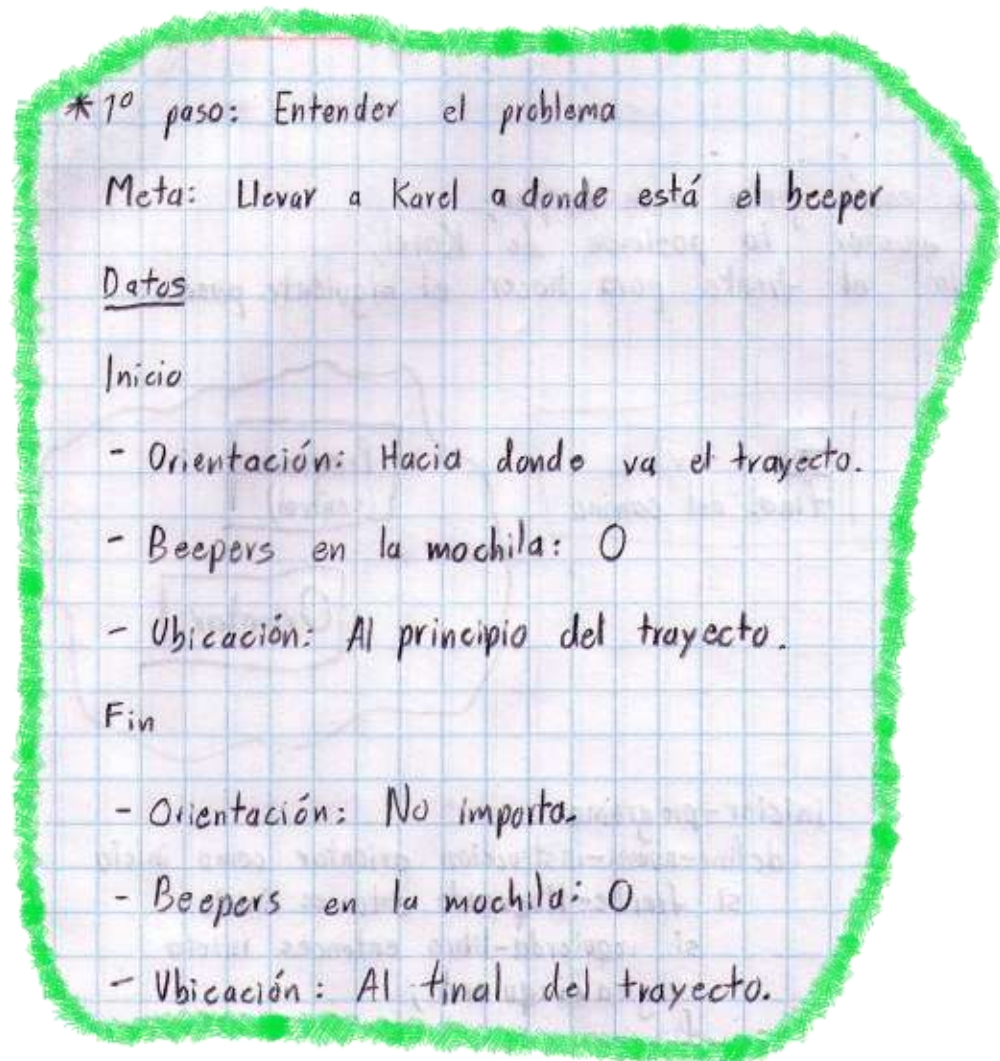 * 1º paso: Entender el problema
Meta: Llevar a Karel a donde está el beeper
Datos
Inicio
- Orientación: Hacia donde va el trayecto.
- Beepers en la mochila: 0
- Ubicación: Al principio del trayecto.
Fin
- Orientación: No importa.
- Beepers en la mochila: 0
- Ubicación: Al final del trayecto.